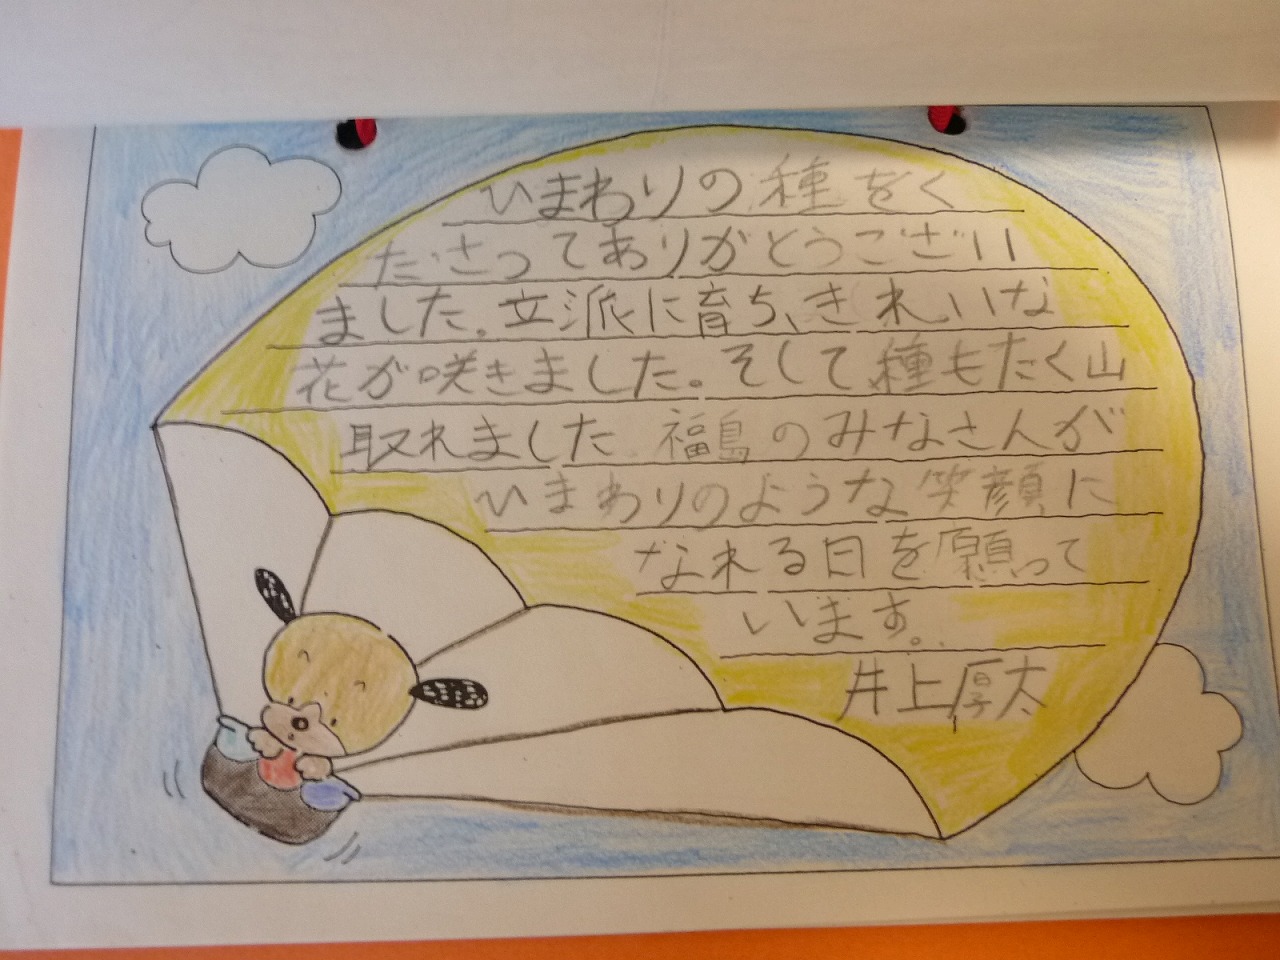 ひまわりの種をく
ださってありがとうござい
ました。立派に育ち、きれいな
花が咲きました。そして、種もたく山
取れました。福島のみなさんが
ひまわりのような笑顔に
なれる日を願って
います。
井上厚太